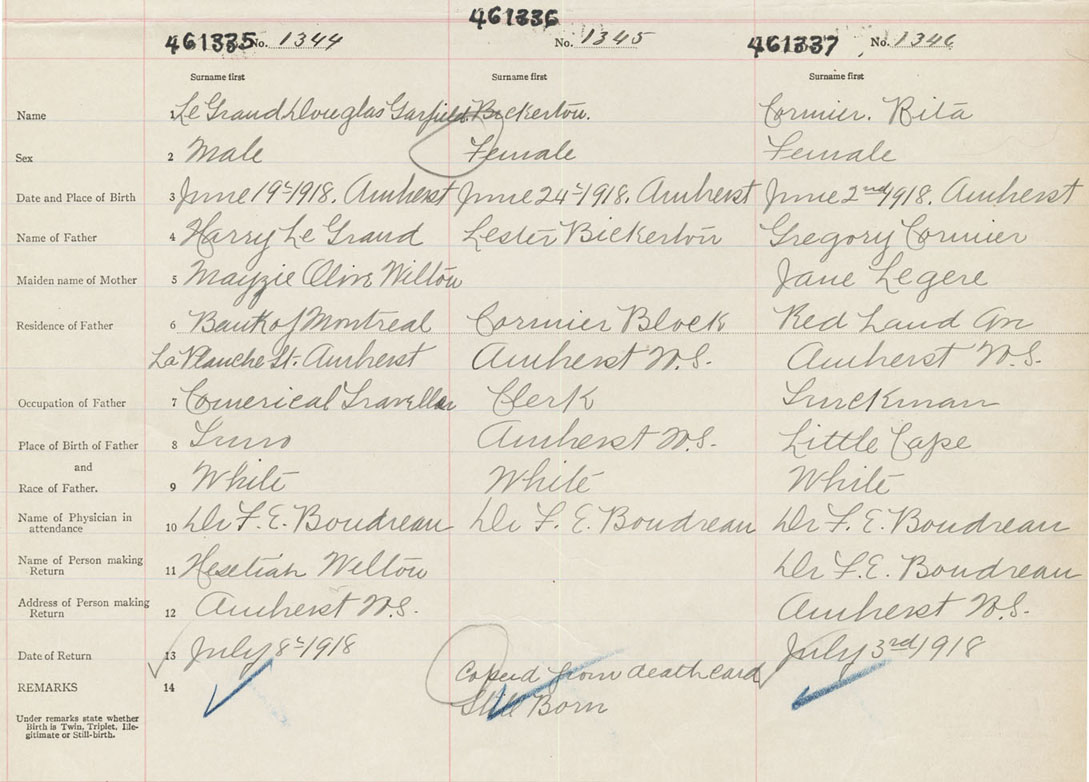 461335 No. 1344 461336 No. 1345 461337 No. 1346
Surname first Surname first Surname first
Name 1 Le Grand Douglas Garfield Bickerton. Cormier. Rita
Sex 2 Male Female Female
Date and Place of Birth 3 June 19th 1918. Amherst June 24th 1918. Amherst June 2nd 1918. Amherst
Name of Father 4 Harry Le Grand Lester Bickerton Gregory Cormier
Maiden name of Mother 5 Mayzie Olive Wilton Jane Legere
Residence of Father 6 Bank of Montreal Cormier Block Red Land
La Planche St. Amherst Amherst N.S. Amherst N.S.
Occupation of Father 7 Comerical Traveller Clerk Truckman
Place of Birth of Father 8 Truro Amherst N.S. Little Cape
and
Race of Father. 9 White White White
Name of Physician in
attendance 10 Dr F. E. Boudreau Dr F. E. Boudreau Dr F. E. Boudreau
Name of Person making
Return 11 Wilton Dr F. E. Boudreau
Address of Person making
Return 12 Amherst N.S. Amherst N.S.
Date of Return 13 July 8th 1918 July 3rd 1918
REMARKS 14 Copied from death card
Still Born
Under remarks state whether
Birth is Twin, Triplet, Ille-
gitimate or Still-birth.